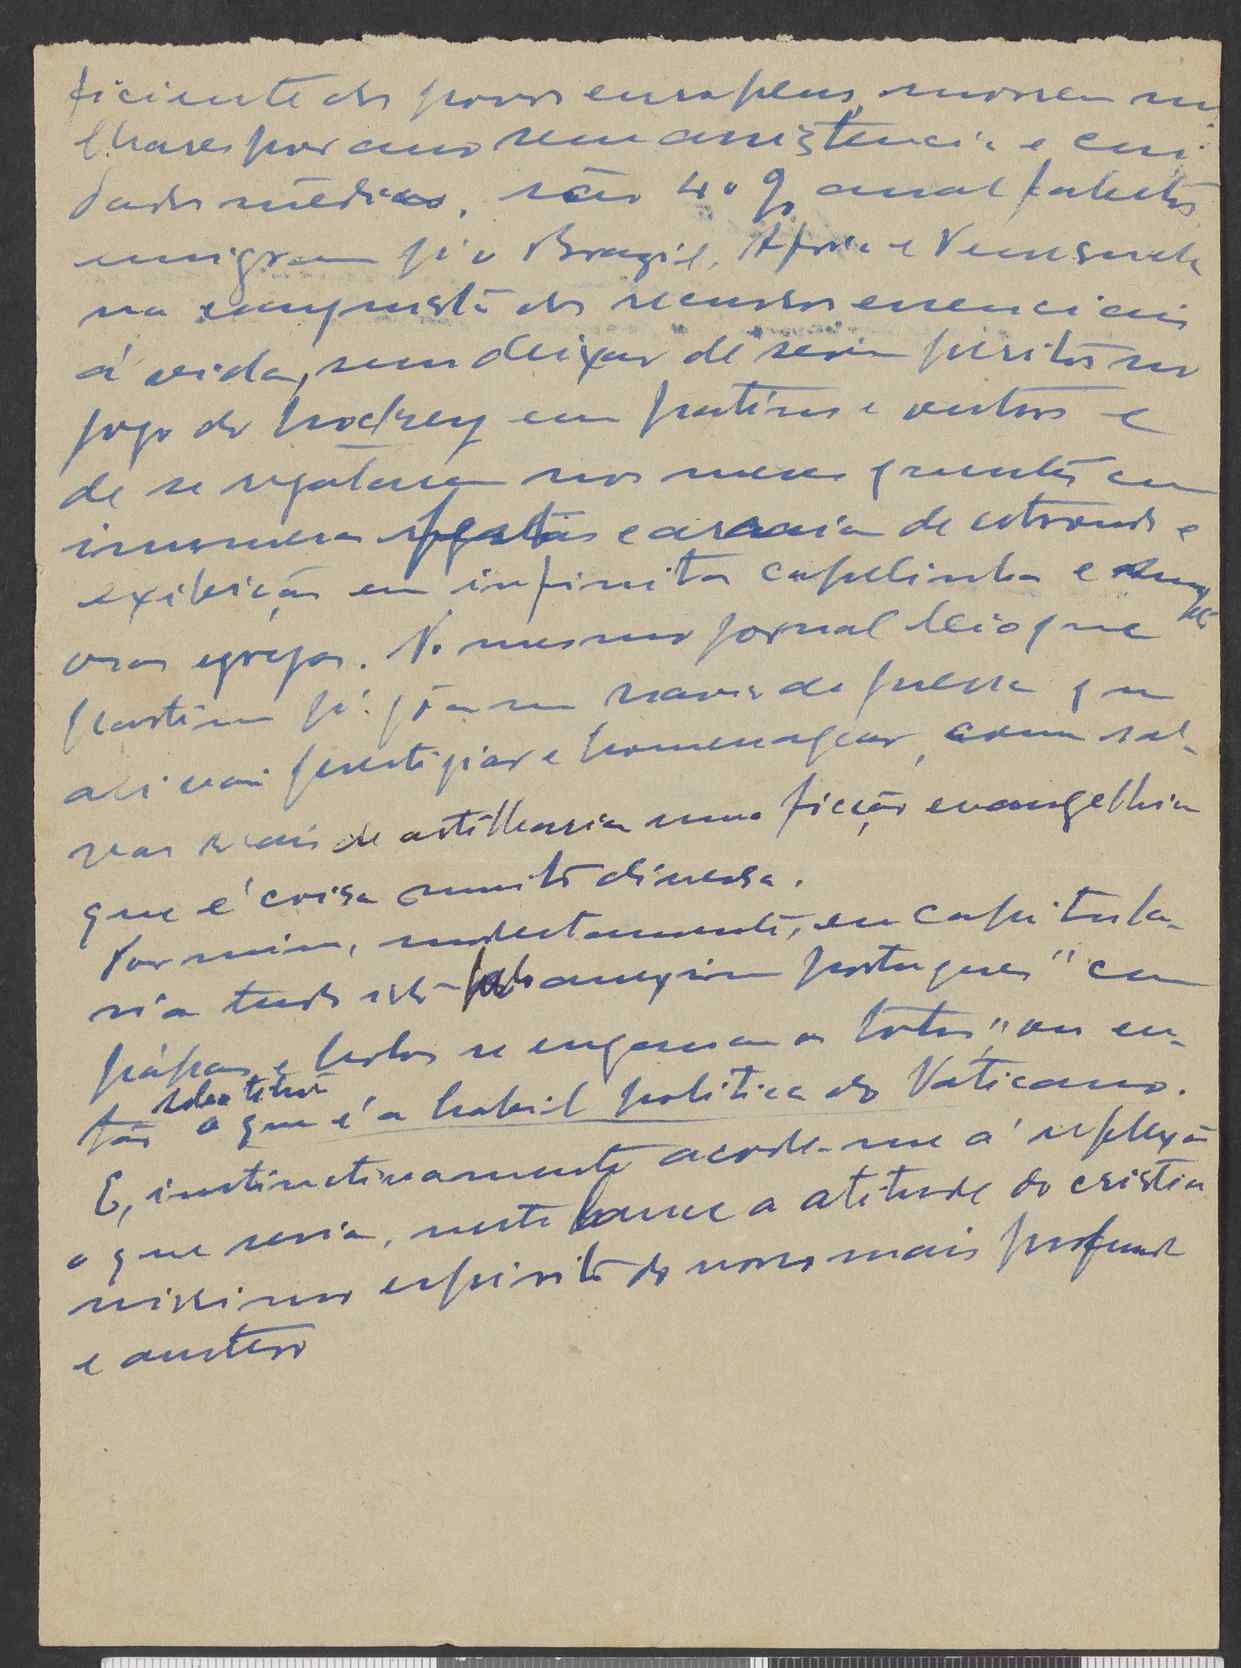 ficiente dos povos europeus, morrem mi
lhares por ano sem assistencia e cui
dados médicos, são 40% analfabetos
emigram p.ª o Brazil, Africa e Venesuela
na conquista dos recursos essenciais
á vida, sem deixar de serem peritos no
jogo do hockey em patins e outros e
de se regalarem nos meses quentes em
inumeras festas e arraiais de estrondo e
exibição em infinitas capelinhas e
osas egrejas. No mesmo jornal leio que
partiram p.ª Gôa um navio de guerra que
ali vai prestigiar e homenagear, com sal-
vas reais de artilharia uma ficção evangelhica
que é coisa muito diversa.
Por mim, modestamente, eu capitula-
ria tudo isto anexim português "com
pápas e bolos se enganam os tolos", ou en-
tão o que é a habil politica do Vaticano.
E, instinctivamente acode-me á reflexão
o que seria, neste lance a atitude do cristia
nissimo espirito do nosso mais profundo
e austero